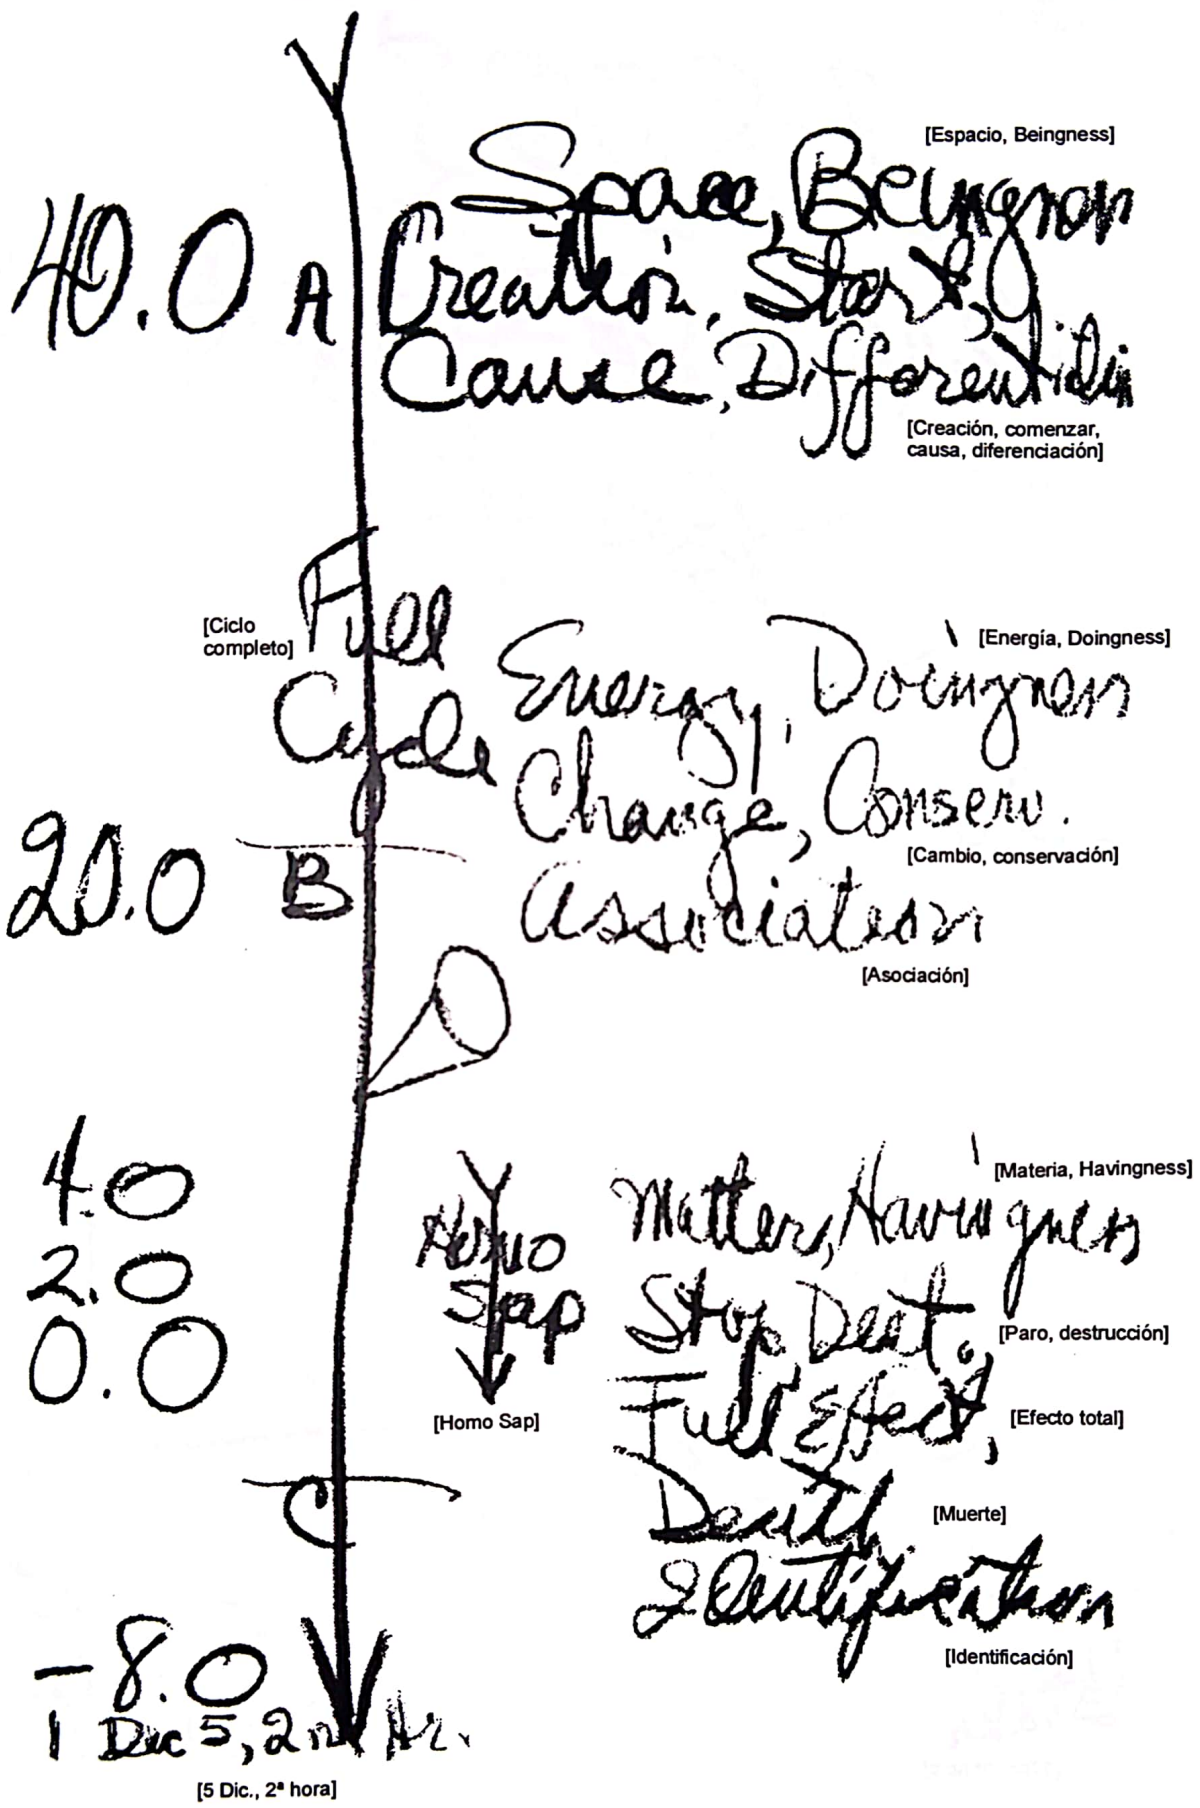 [Espacio, Beingness]
Space, Beingness
40.0 A Creation, Start,
Cause, Differentiatn
[Creación, comenzar,
causa, diferenciación]
[Ciclo
completo]
Full
Cycle
[Energía, Doingness]
Energy, Doingness
Change, Conserv.
[Cambio, conservación]
20.0 B Association
[Asociación]
[Materia, Havingness]
4.0
2.0
0.0
Homo
Sap
[Homo Sap]
Matter, Havingness
Stop, Dest.,
[Paro, destrucción]
Full Effect,
[Efecto total]
C
Death
[Muerte]
IDentification
[Identificación]
-8.0
1 Dec 5, 2nd Hr.
[5 Dic., 2ª hora]